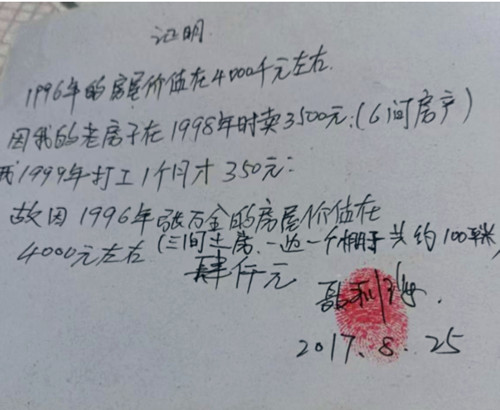 证明
1996年的房屋价值在4000千元左右.
因我的老房子在1998年时卖3500元.(6间房产)
我1999年打工1个月才350元.
故因1996年张万金的房屋价值在
4000元左右(三间土房.一边一个棚子共约100平米)
肆仟元
2017.8.25